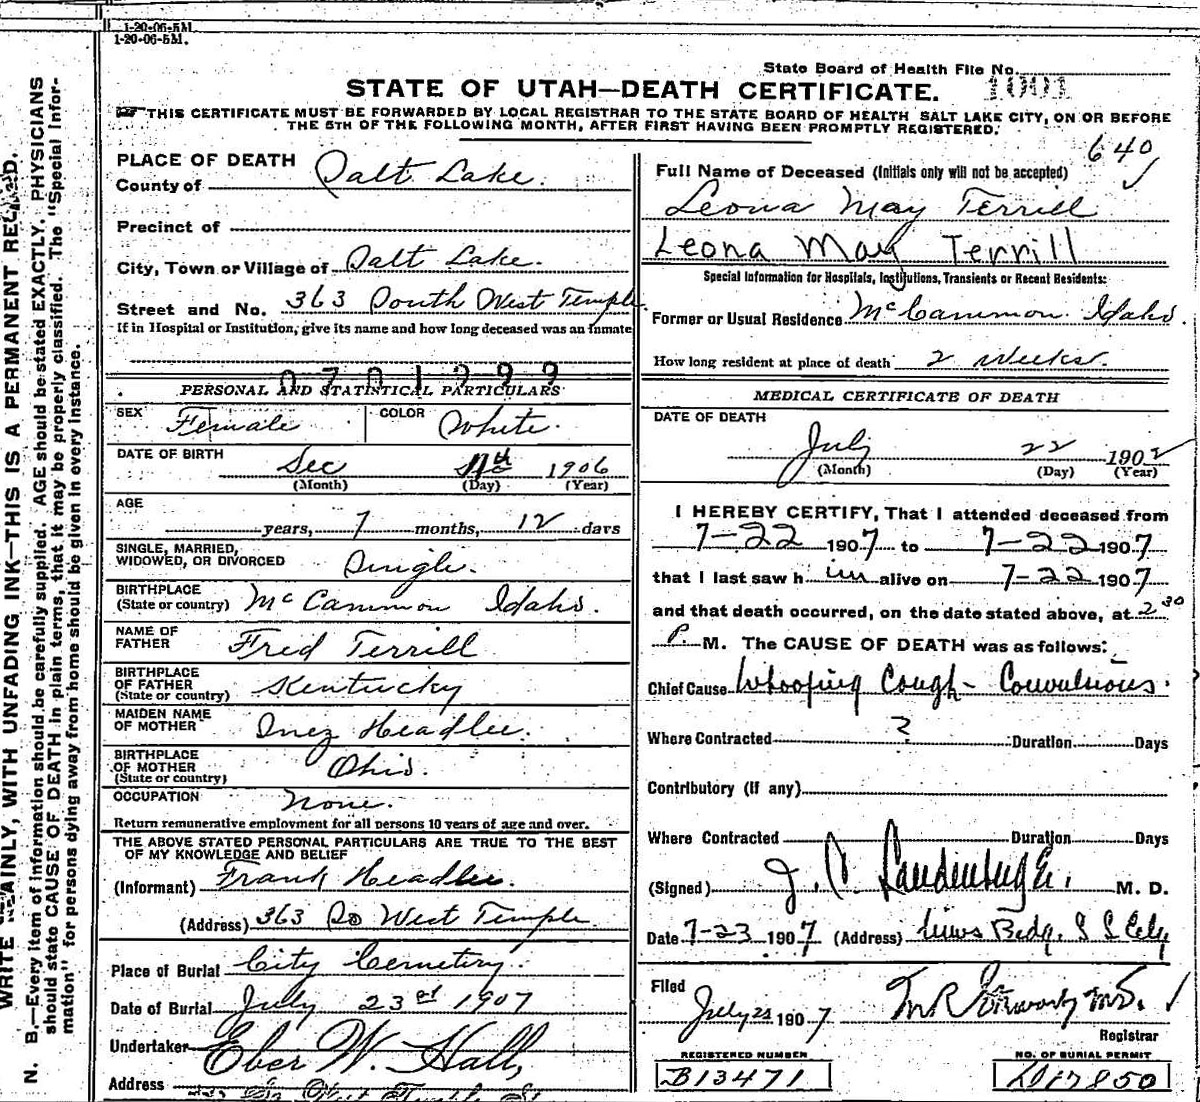 1-20-06-5M.
1-20-06-5M.
State Board of Health File No. 1001
STATE OF UTAH—DEATH CERTIFICATE.
THIS CERTIFICATE MUST BE FORWARDED BY LOCAL REGISTRAR TO THE STATE BOARD OF HEALTH SALT LAKE CITY, ON OR BEFORE
THE 5TH OF THE FOLLOWING MONTH, AFTER FIRST HAVING BEEN PROMPTLY REGISTERED.
WRITE PLAINLY, WITH UNFADING INK—THIS IS A PERMANENT RECORD.
N. B.—Every item of information should be carefully supplied. AGE should be stated EXACTLY. PHYSICIANS
should state CAUSE OF DEATH in plain terms, that it may be properly classified. The "Special Infor-
mation" for persons dying away from home should be given in every instance.
PLACE OF DEATH
County of Salt Lake.
Precinct of
City, Town or Village of Salt Lake.
Street and No. 363 South West Temple
If in Hospital or Institution, give its name and how long deceased was an inmate
0701299
PERSONAL AND STATISTICAL PARTICULARS
SEX Female COLOR White.
DATE OF BIRTH
Dec 1906
(Month) (Day) (Year)
AGE
years, 7 months, 12 days
SINGLE, MARRIED,
WIDOWED, OR DIVORCED Single.
BIRTHPLACE
(State or country) McCammon Idaho.
NAME OF
FATHER Fred Terrill
BIRTHPLACE
OF FATHER
(State or country) Kentucky
MAIDEN NAME
OF MOTHER Inez Headlee.
BIRTHPLACE
OF MOTHER
(State or country) Ohio.
OCCUPATION None.
Return remunerative employment for all persons 10 years of age and over.
THE ABOVE STATED PERSONAL PARTICULARS ARE TRUE TO THE BEST
OF MY KNOWLEDGE AND BELIEF
(Informant) Frank Headlee.
(Address) 363 So West Temple
Place of Burial City Cemetery.
Date of Burial July 23rd 1907
Undertaker Eber W. Hall,
Address West Temple St
640
Full Name of Deceased (Initials only will not be accepted)
Leona May Terrill
Leona May Terrill
Special Information for Hospitals, Institutions, Transients or Recent Residents:
Former or Usual Residence McCammon. Idaho.
How long resident at place of death 2 Weeks.
MEDICAL CERTIFICATE OF DEATH
DATE OF DEATH
July 22 190
(Month) (Day) (Year)
I HEREBY CERTIFY, That I attended deceased from
7-22 1907 to 7-22 1907
that I last saw h im alive on 7-22 1907
and that death occurred, on the date stated above, at 2 30
P. M. The CAUSE OF DEATH was as follows:
Chief Cause Whooping Cough - Convulsions.
Where Contracted ? Duration Days
Contributory (If any)
Where Contracted Duration Days
(Signed) J. C. Landenberger. M. D.
Date 7-23 1907 (Address) S L City
Filed
July 23 1907
Registrar
REGISTERED NUMBER NO. OF BURIAL PERMIT
B13471